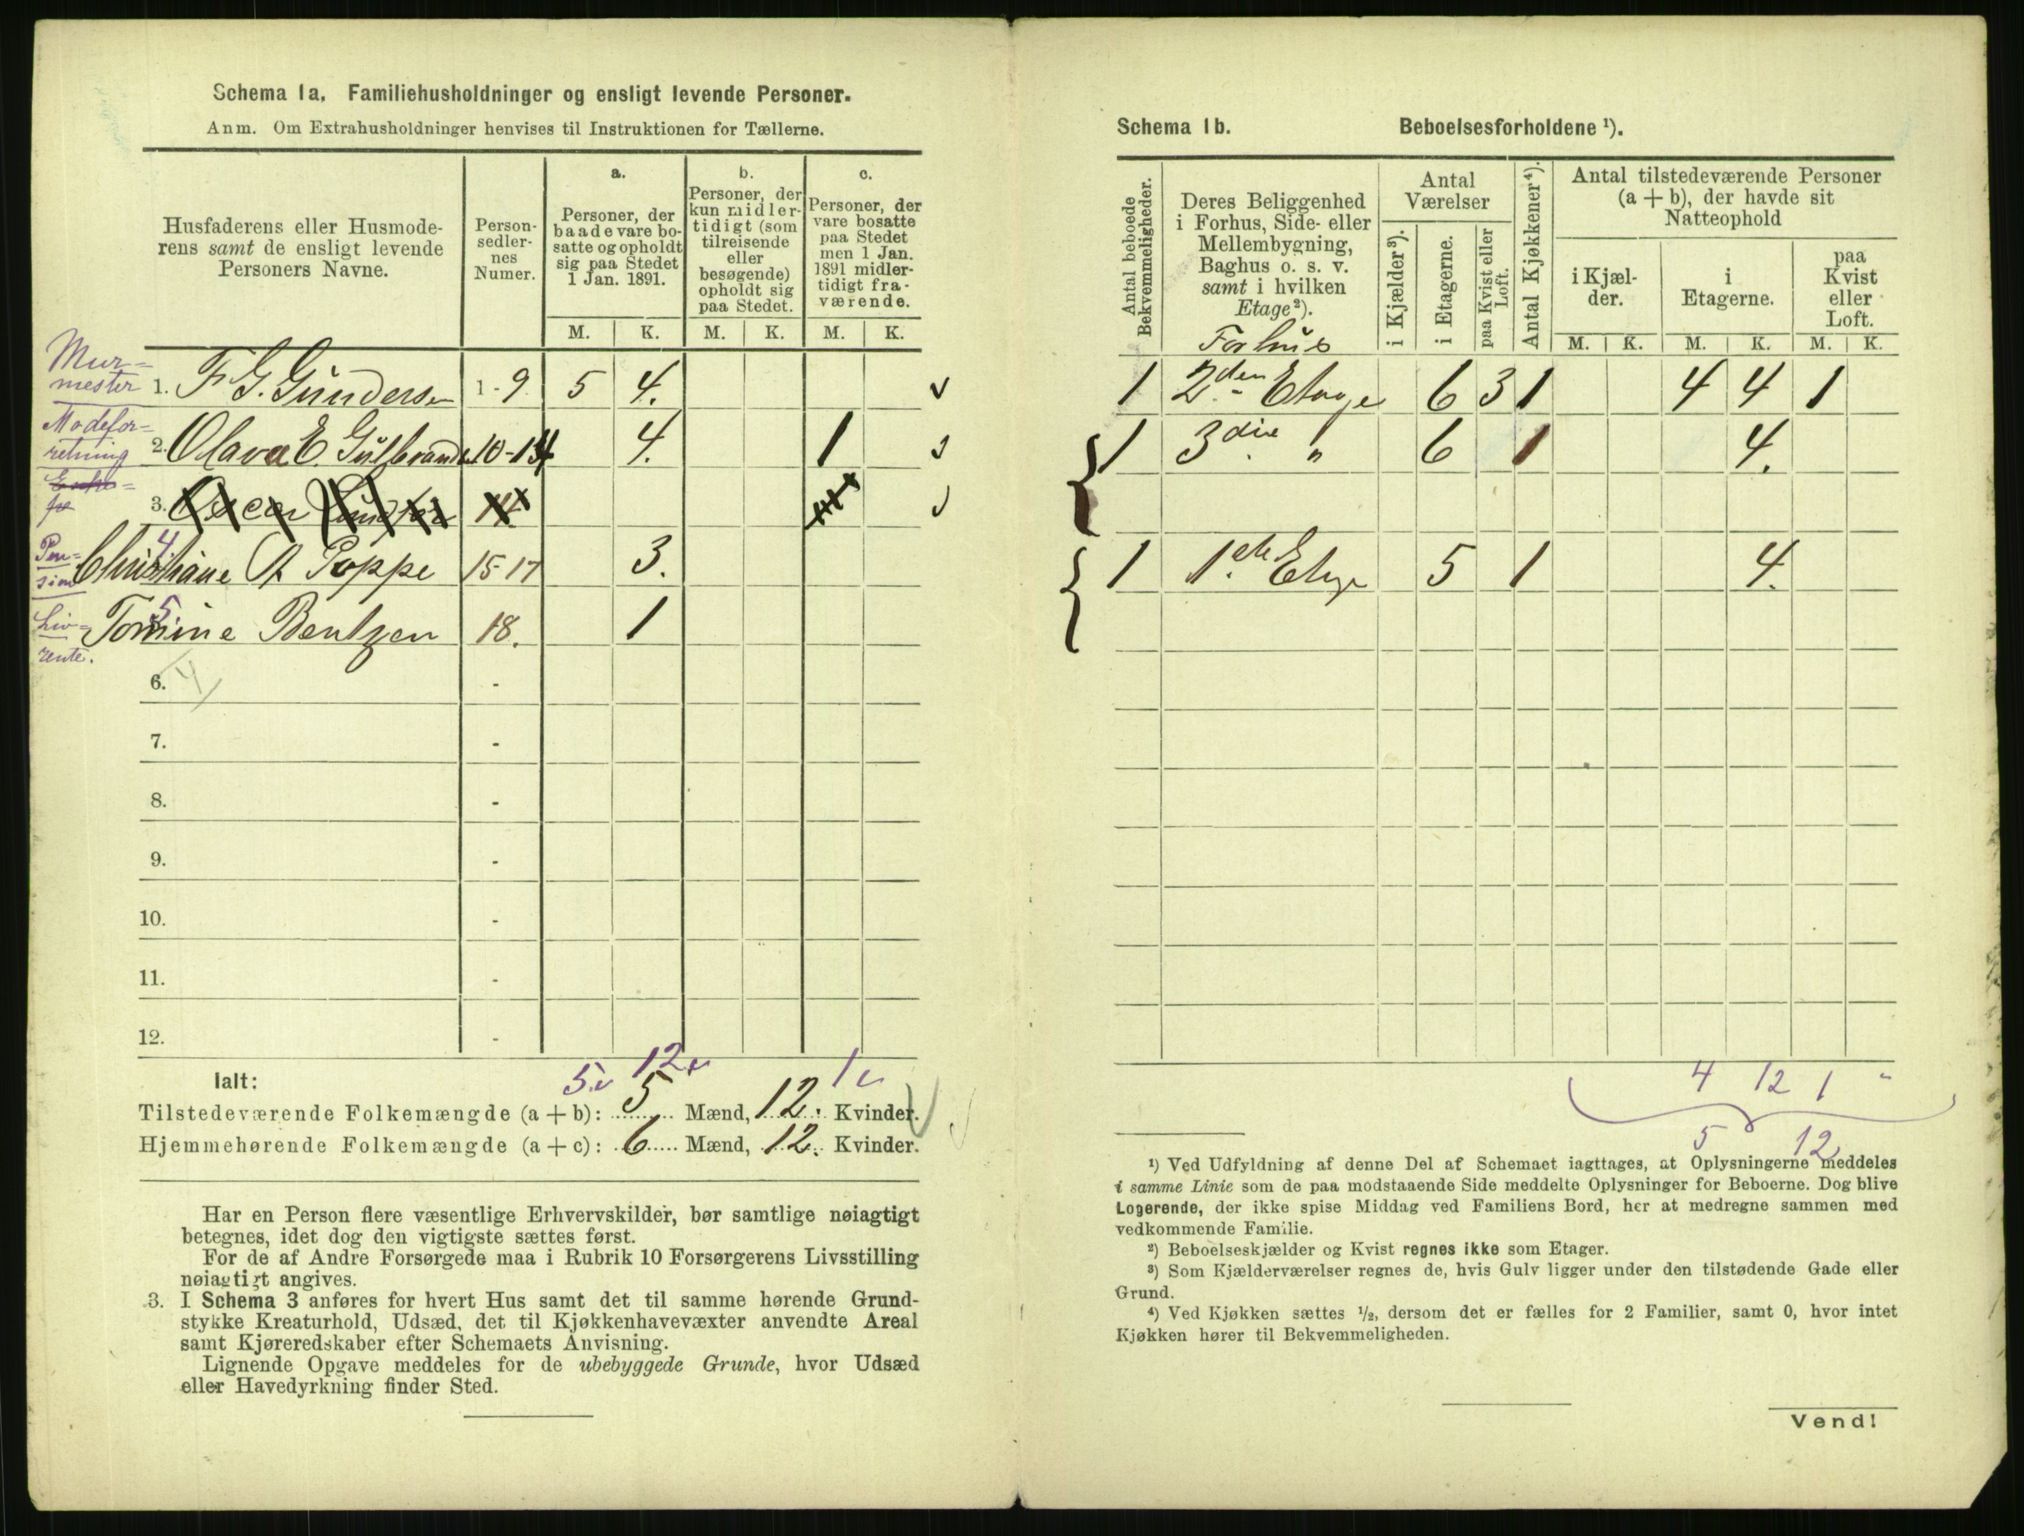 Schema 1a. Familiehusholdninger og ensligt levende Personer.
Anm. Om Extrahusholdninger henvises til Instruktionen for Tællerne.
Husfaderens eller Husmoderens samt de ensligt levende Personers Navne.
Personsedlernes Numer.
a.
Personer, der baade vare bosatte og opholdt sig paa Stedet 1 Jan. 1891.
b.
Personer, der kun midlertidigt (som tilreisende eller besøgende) opholdt sig paa Stedet.
c.
Personer, der vare bosatte paa Stedet men 1 Jan. 1891 midlertidigt fraværende.
M. K. M. K. M. K.
Murmester 1. F. G. Gundersen 1-9 5 4.
Modeforretning 2. Olava E. Gulbrands 10-14 4. 1
3. Oscar 14
Pension 4. Christiane Poppe 15-17 3.
Livrente. 5. Tomine Bentzen 18. 1
6. - 4
7. -
8. -
9. -
10. -
11. -
12. -
5 12 1
Ialt:
Tilstedeværende Folkemængde (a + b): 5 Mænd, 12. Kvinder.
Hjemmehørende Folkemængde (a + c): 6 Mænd, 12. Kvinder.
Har en Person flere væsentlige Erhvervskilder, bør samtlige nøiagtigt
betegnes, idet dog den vigtigste sættes først.
For de af Andre Forsørgede maa i Rubrik 10 Forsørgerens Livsstilling
nøiagtigt angives.
3. I Schema 3 anføres for hvert Hus samt det til samme hørende Grund-
stykke Kreaturhold, Udsæd, det til Kjøkkenhavevæxter anvendte Areal
samt Kjøreredskaber efter Schemaets Anvisning.
Lignende Opgave meddeles for de ubebyggede Grunde, hvor Udsæd
eller Havedyrkning finder Sted.
Schema 1b. Beboelsesforholdene ¹).
Antal beboede Bekvemmeligheder.
Deres Beliggenhed i Forhus, Side- eller Mellembygning, Baghus o. s. v. samt i hvilken Etage²).
Antal Værelser
i Kjælder³).
i Etagerne.
paa Kvist eller Loft.
Antal Kjøkkener⁴).
Antal tilstedeværende Personer (a + b), der havde sit Natteophold
i Kjælder.
i Etagerne.
paa Kvist eller Loft.
M. K. M. K. M. K.
Forhus
1 2den Etage 6 3 1 4 4 1
1 3die " 6 1 4.
1 1ste Etage 5 1 4.
4 12 1 "
5 12
¹) Ved Udfyldning af denne Del af Schemaet iagttages, at Oplysningerne meddeles
i samme Linie som de paa modstaaende Side meddelte Oplysninger for Beboerne. Dog blive
Logerende, der ikke spise Middag ved Familiens Bord, her at medregne sammen med
vedkommende Familie.
²) Beboelseskjælder og Kvist regnes ikke som Etager.
³) Som Kjælderværelser regnes de, hvis Gulv ligger under den tilstødende Gade eller
Grund.
⁴) Ved Kjøkken sættes ½, dersom det er fælles for 2 Familier, samt 0, hvor intet
Kjøkken hører til Bekvemmeligheden.
Vend!